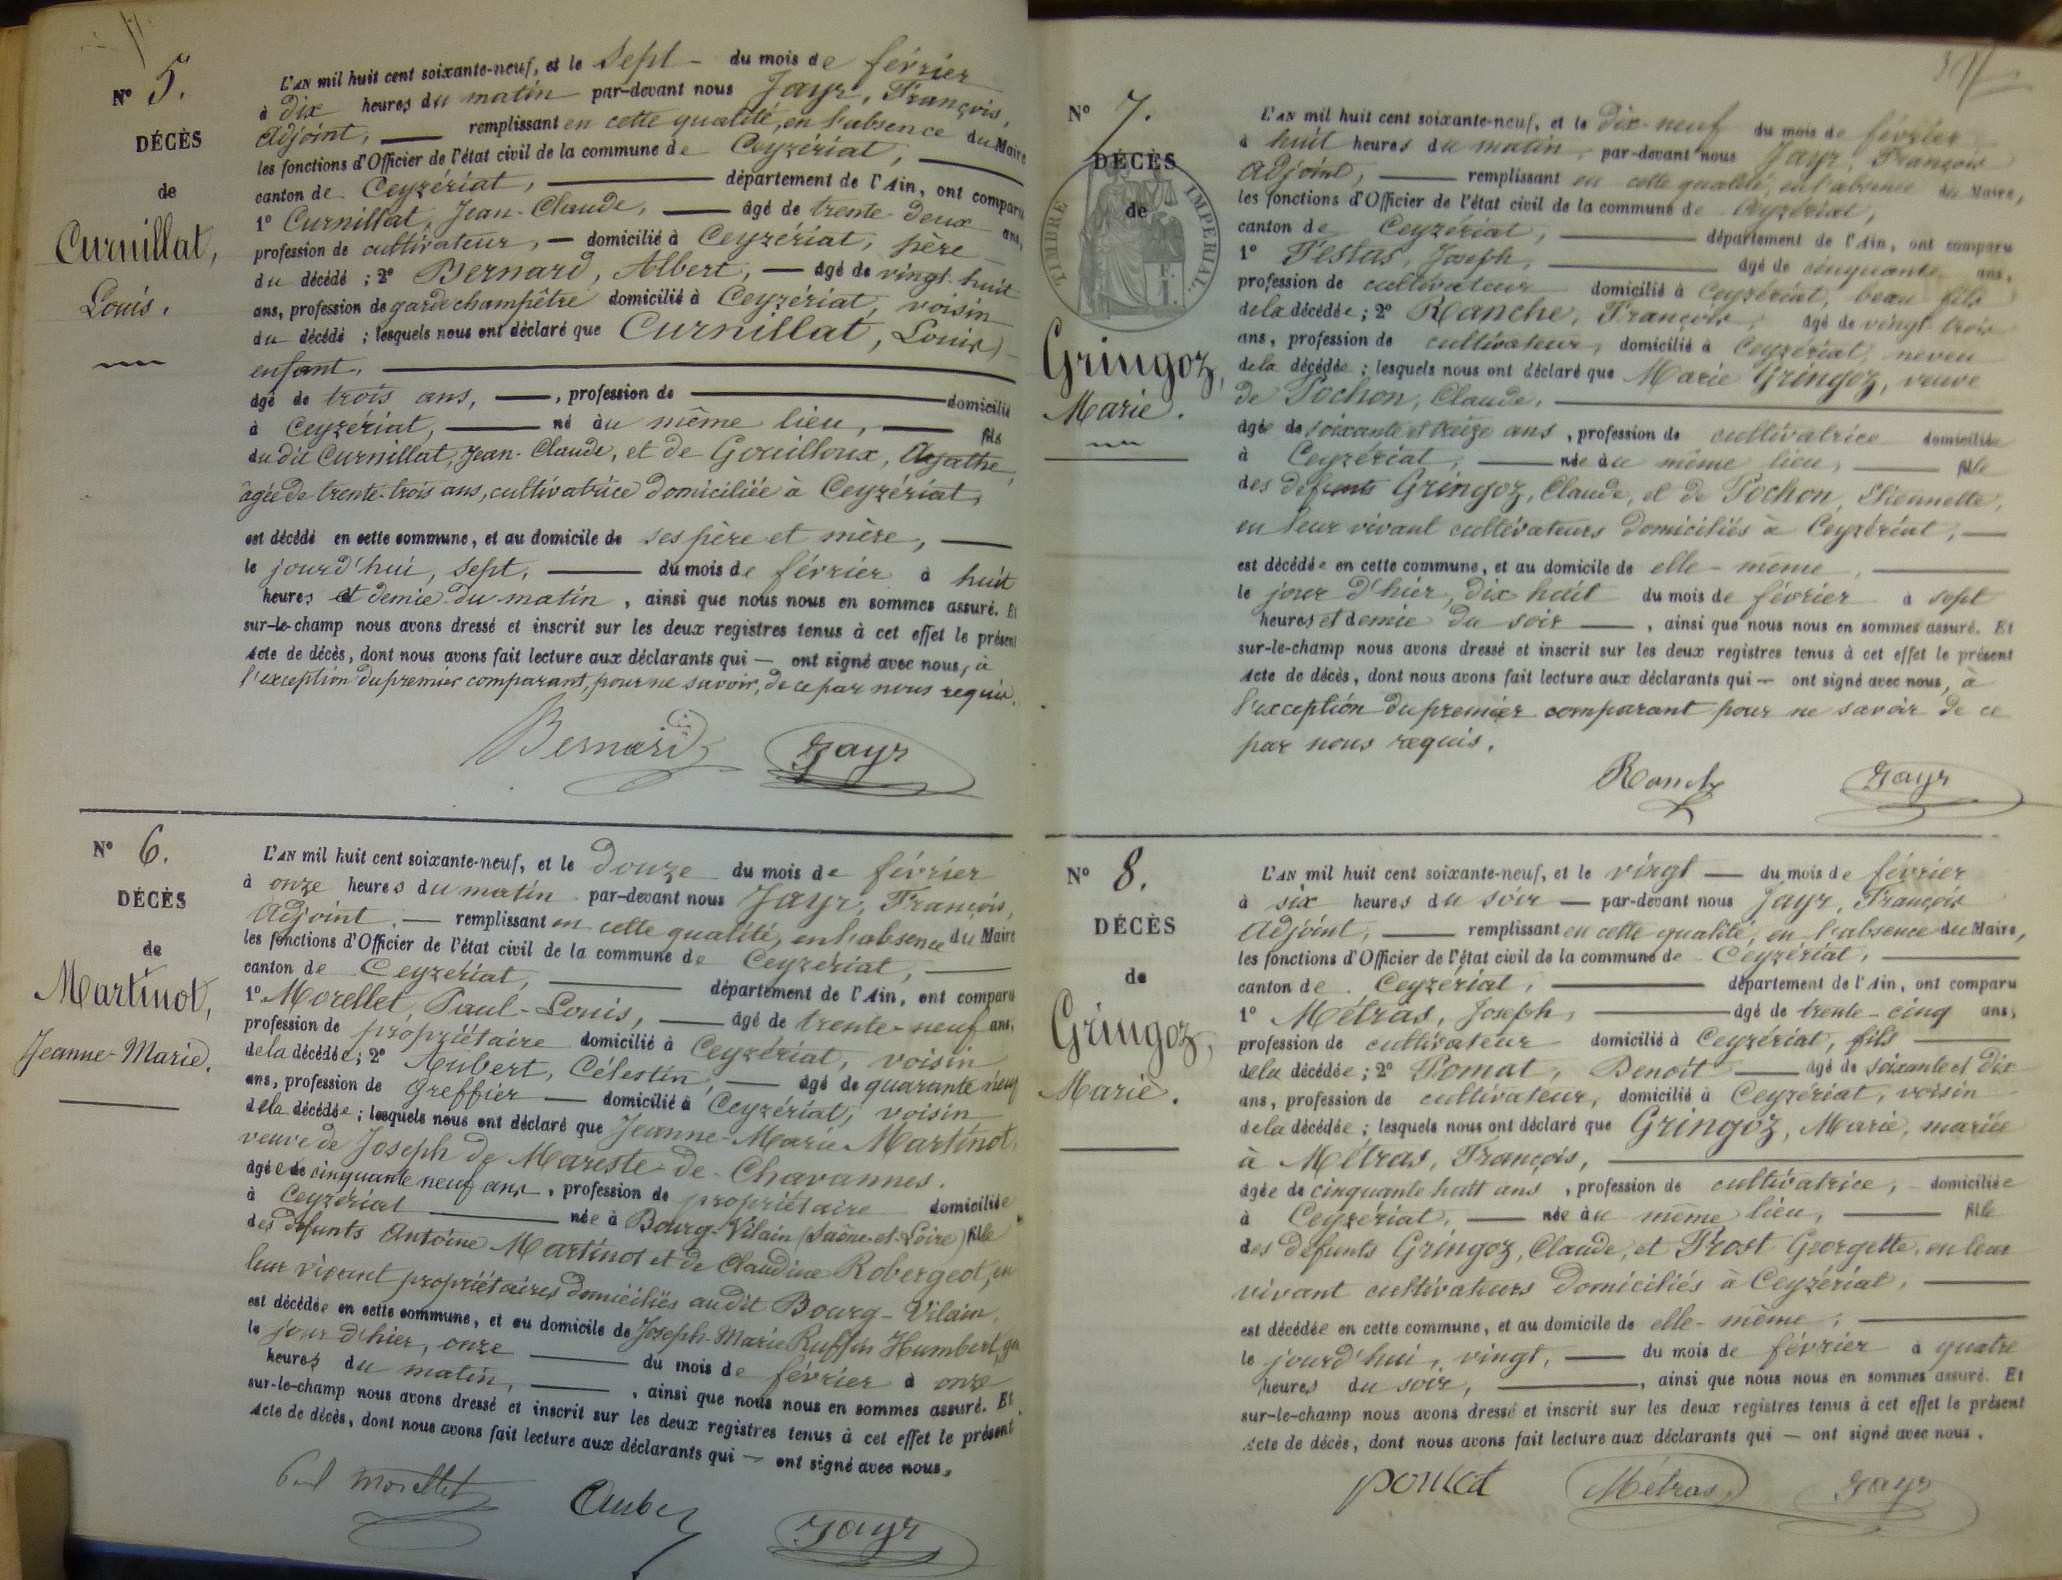 N° 5.
DÉCÈS
de
Curnillat,
Louis.
L'AN mil huit cent soixante-neuf, et le Sept – du mois de février
à dix heures du matin par-devant nous Jayr, François,
Adjoint, remplissant en cette qualité, en l'absence du Maire
les fonctions d'Officier de l'état civil de la commune de Ceyzériat,
canton de Ceyzériat, département de l'Ain, ont comparu
1° Curnillat, Jean-Claude, âgé de trente deux ans,
profession de cultivateur, domicilié à Ceyzériat, père
du décédé ; 2° Bernard, Albert, âgé de vingt huit
ans, profession de garde champêtre domicilié à Ceyzériat, voisin
du décédé ; lesquels nous ont déclaré que Curnillat, Louis,
enfant,
âgé de trois ans, , profession de domicilié
à Ceyzériat, né au même lieu, fils
du dit Curnillat, Jean-Claude, et de Gouilloux, Agathe,
âgée de trente-trois ans, cultivatrice domiciliée à Ceyzériat,
est décédé en cette commune, et au domicile de ses père et mère,
le jourd'hui, sept, du mois de février à huit
heures et demie du matin , ainsi que nous nous en sommes assuré. Et
sur-le-champ nous avons dressé et inscrit sur les deux registres tenus à cet effet le présent
Acte de décès, dont nous avons fait lecture aux déclarants qui — ont signé avec nous, à
l'exception du premier comparant, pour ne savoir, de ce par nous requis.
Bernard Jayr
N° 6.
DÉCÈS
de
Martinot,
Jeanne-Marie.
L'AN mil huit cent soixante-neuf, et le douze du mois de février
à onze heures du matin par-devant nous Jayr, François,
Adjoint, — remplissant en cette qualité, en l'absence du Maire
les fonctions d'Officier de l'état civil de la commune de Ceyzériat,
canton de Ceyzériat, département de l'Ain, ont comparu
1° Morellet, Paul-Louis, âgé de trente-neuf ans,
profession de propriétaire domicilié à Ceyzériat, voisin
de la décédée ; 2° Aubert, Célestin, âgé de quarante neuf
ans, profession de Greffier domicilié à Ceyzériat, voisin
de la décédée ; lesquels nous ont déclaré que Jeanne-Marie Martinot,
veuve de Joseph de Mareste de Chavannes.
âgée de cinquante neuf ans, profession de propriétaire domiciliée
à Ceyzériat née à Bourg-Vilain (Saône-et-Loire) fille
des défunts Antoine Martinot et de Claudine Robergeot, en
leur vivant propriétaires domiciliés audit Bourg-Vilain,
est décédée en cette commune, et au domicile de Joseph-Marie Ruffin Humbert,
le jour d'hier, onze du mois de février à onze
heures du matin, , ainsi que nous nous en sommes assuré. Et
sur-le-champ nous avons dressé et inscrit sur les deux registres tenus à cet effet le présent
Acte de décès, dont nous avons fait lecture aux déclarants qui — ont signé avec nous.
Morellet Aubert Jayr
N° 7.
DÉCÈS
de
TIMBRE IMPÉRIAL
Gringoz,
Marie.
L'AN mil huit cent soixante-neuf, et le dix-neuf du mois de février
à huit heures du matin, par-devant nous Jayr, François
Adjoint, remplissant en cette qualité, en l'absence du Maire,
les fonctions d'Officier de l'état civil de la commune de Ceyzériat,
canton de Ceyzériat, département de l'Ain, ont comparu
1° Festas, Joseph, âgé de cinquante ans,
profession de cultivateur domicilié à Ceyzériat, beau fils
de la décédée ; 2° Ranche, François, âgé de vingt trois
ans, profession de cultivateur, domicilié à Ceyzériat, neveu
de la décédée ; lesquels nous ont déclaré que Marie Gringoz, veuve
de Pochon, Claude,
âgée de soixante et treize ans , profession de cultivatrice domiciliée
à Ceyzériat, née au même lieu, fille
des défunts Gringoz, Claude, et de Pochon, Etiennette,
en leur vivant cultivateurs domiciliés à Ceyzériat,
est décédée en cette commune, et au domicile de elle-même,
le jour d'hier, dix huit du mois de février à sept
heures et demie du soir , ainsi que nous nous en sommes assuré. Et
sur-le-champ nous avons dressé et inscrit sur les deux registres tenus à cet effet le présent
Acte de décès, dont nous avons fait lecture aux déclarants qui — ont signé avec nous, à
l'exception du premier comparant pour ne savoir de ce
par nous requis.
Ranch Jayr
N° 8.
DÉCÈS
de
Gringoz,
Marie.
L'AN mil huit cent soixante-neuf, et le vingt — du mois de février
à six heures du soir — par-devant nous Jayr, François
Adjoint, remplissant en cette qualité, en l'absence du Maire,
les fonctions d'Officier de l'état civil de la commune de Ceyzériat,
canton de Ceyzériat, département de l'Ain, ont comparu
1° Métras, Joseph, âgé de trente-cinq ans,
profession de cultivateur domicilié à Ceyzériat, fils
de la décédée ; 2° Pomat, Benoit âgé de soixante et dix
ans, profession de cultivateur, domicilié à Ceyzériat, voisin
de la décédée ; lesquels nous ont déclaré que Gringoz, Marie, mariée
à Métras, François,
âgée de cinquante huit ans , profession de cultivatrice, domiciliée
à Ceyzériat, née au même lieu, fille
des défunts Gringoz, Claude, et Prost Georgette, en leur
vivant cultivateurs domiciliés à Ceyzériat,
est décédée en cette commune, et au domicile de elle-même,
le jourd'hui, vingt, du mois de février à quatre
heures du soir, , ainsi que nous nous en sommes assuré. Et
sur-le-champ nous avons dressé et inscrit sur les deux registres tenus à cet effet le présent
Acte de décès, dont nous avons fait lecture aux déclarants qui — ont signé avec nous.
Métras Jayr